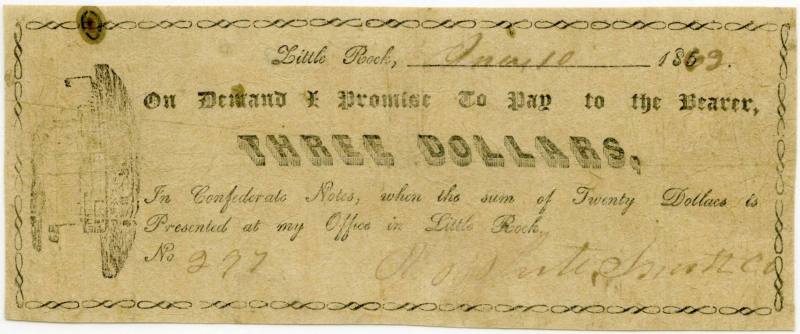 Little Rock, 10 1862.
On Demand I Promise To Pay to the Bearer,
THREE DOLLARS,
In Confederate Notes, when the sum of Twenty Dollaes is
Presented at my Office in Little Rock,
No 297